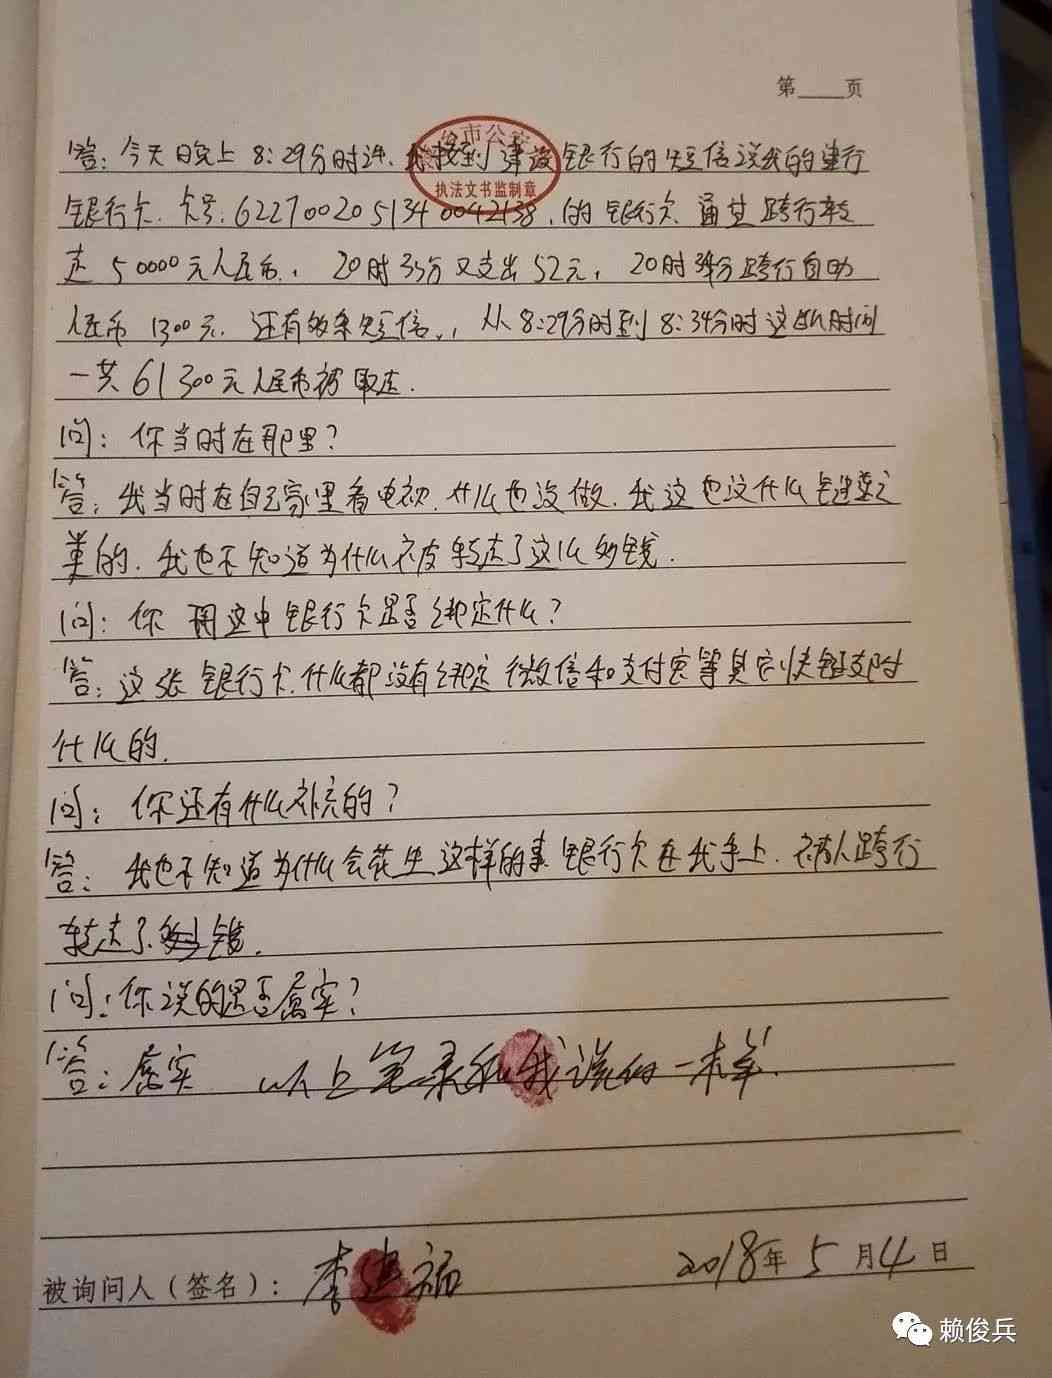 第____页
市公安
执法文书监制章
答：今天晚上8:29分时进，我接到建设银行的短信说我的建行
银行卡，卡号：6227002051340042138，的银行卡通过跨行转
走50000元人民币，20时33分又支出52元，20时34分跨行自助
人民币1300元，还有多条短信，从8:29分时到8:34分时这段时间
一共61300元人民币被取走．
问：你当时在那里？
答：我当时在自己家里看电视，什么也没做，我这也这什么链接之
类的，我也不知道为什么被转走了这么多钱．
问：你用这中银行卡是否绑定什么？
答：这张银行卡，什么都没有绑定微信和支付宝等其它快链支付
什么的．
问：你还有什么补充的？
答：我也不知道为什么会花生这样的事银行卡在我手上，被人跨行
转走了多钱．
问：你说的是否属实？
答：属实 以上笔录和我说的一样．
被询问人（签名）：李建福 2018年5月4日
赖俊兵